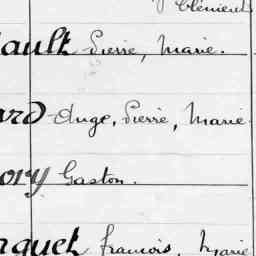 Clément
ault Pierre, Marie.
ard Ange, Pierre, Marie.
ory Gaston.
rquet François, Marie